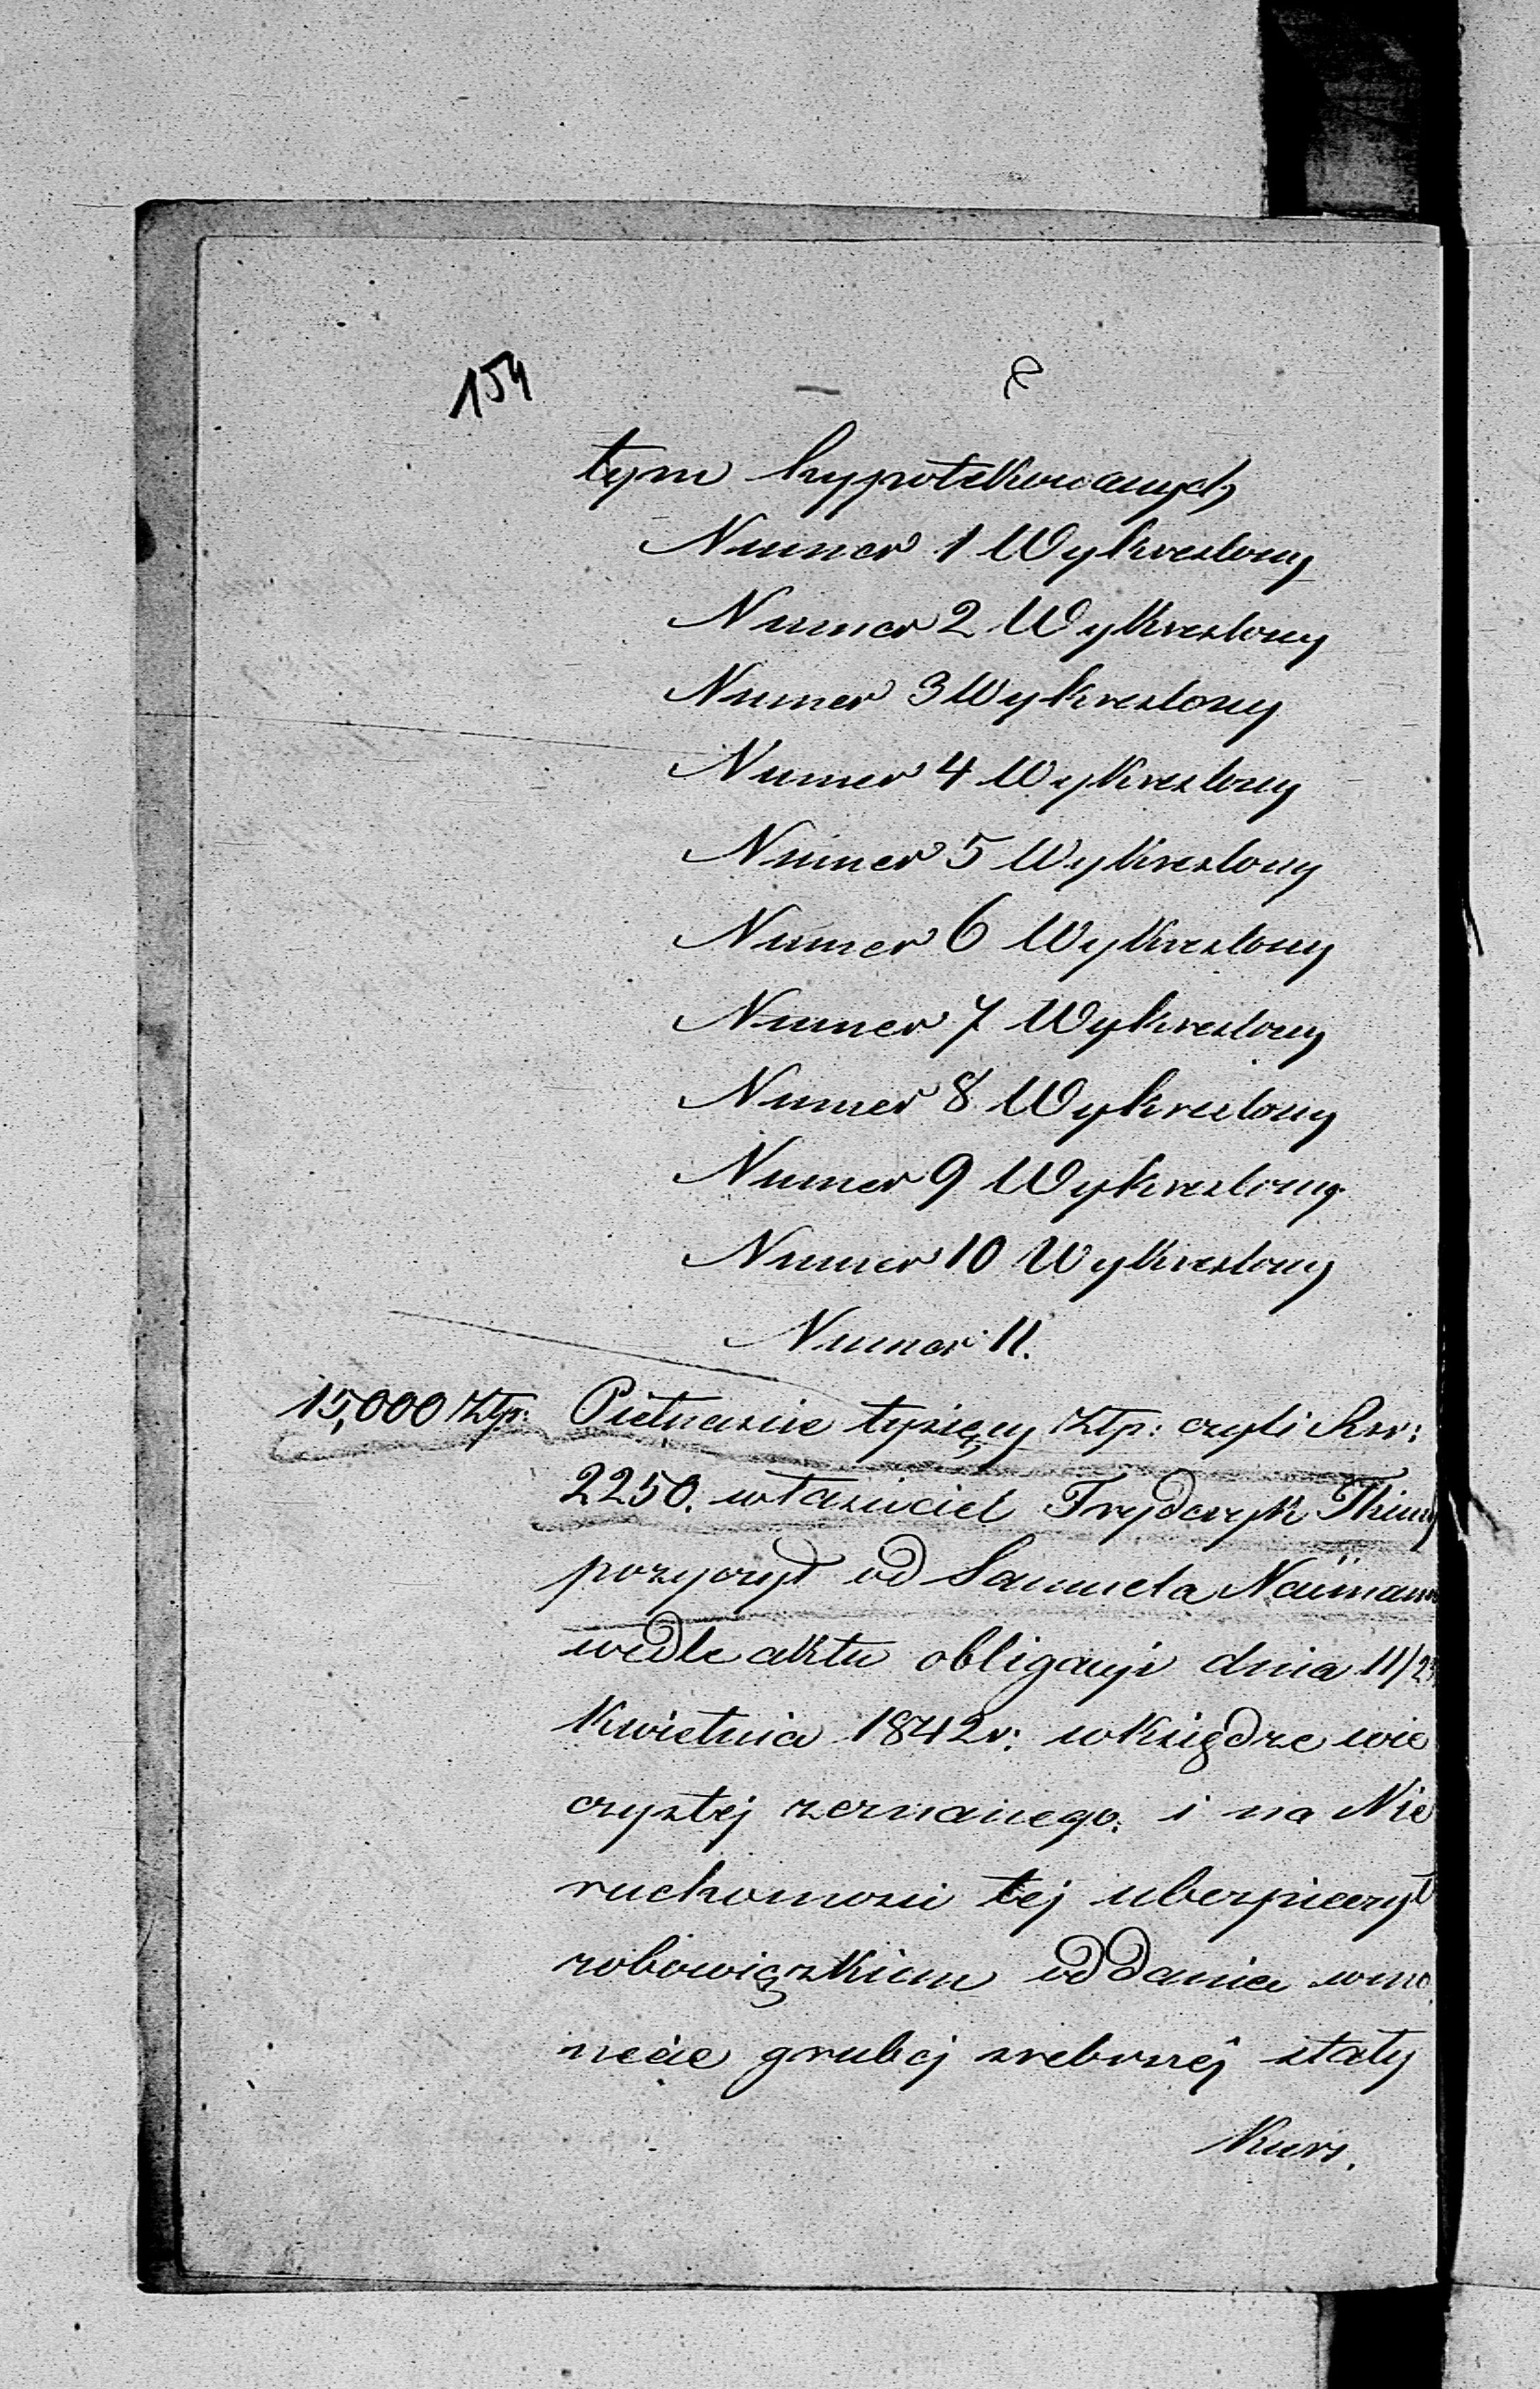 154
tym hypotekowanych
Numer 1 Wykreslony
Numer 2 Wykreslony
Numer 3 Wykreslony
Numer 4 Wykreslony
Numer 5 Wykreslony
Numer 6 Wykreslony
Numer 7 Wykreslony
Numer 8 Wykreslony
Numer 9 Wykreslony
Numer 10 Wykreslony
Numer 11.
15,000 złp: Pietnascie tysięcy złp: czyli Rsr:
2250. własciciel Fryderyk
pozyczył od Samuela Naümann
wedle aktu obligacyi dnia 11/23
Kwietnia 1842 r: w Księdze wie
czystej zeznanego. i na Nie
ruchomosci tej ubezpieczył
zobowiązkiem oddania w mo
necie grubej srebrnej stały
Kurs.